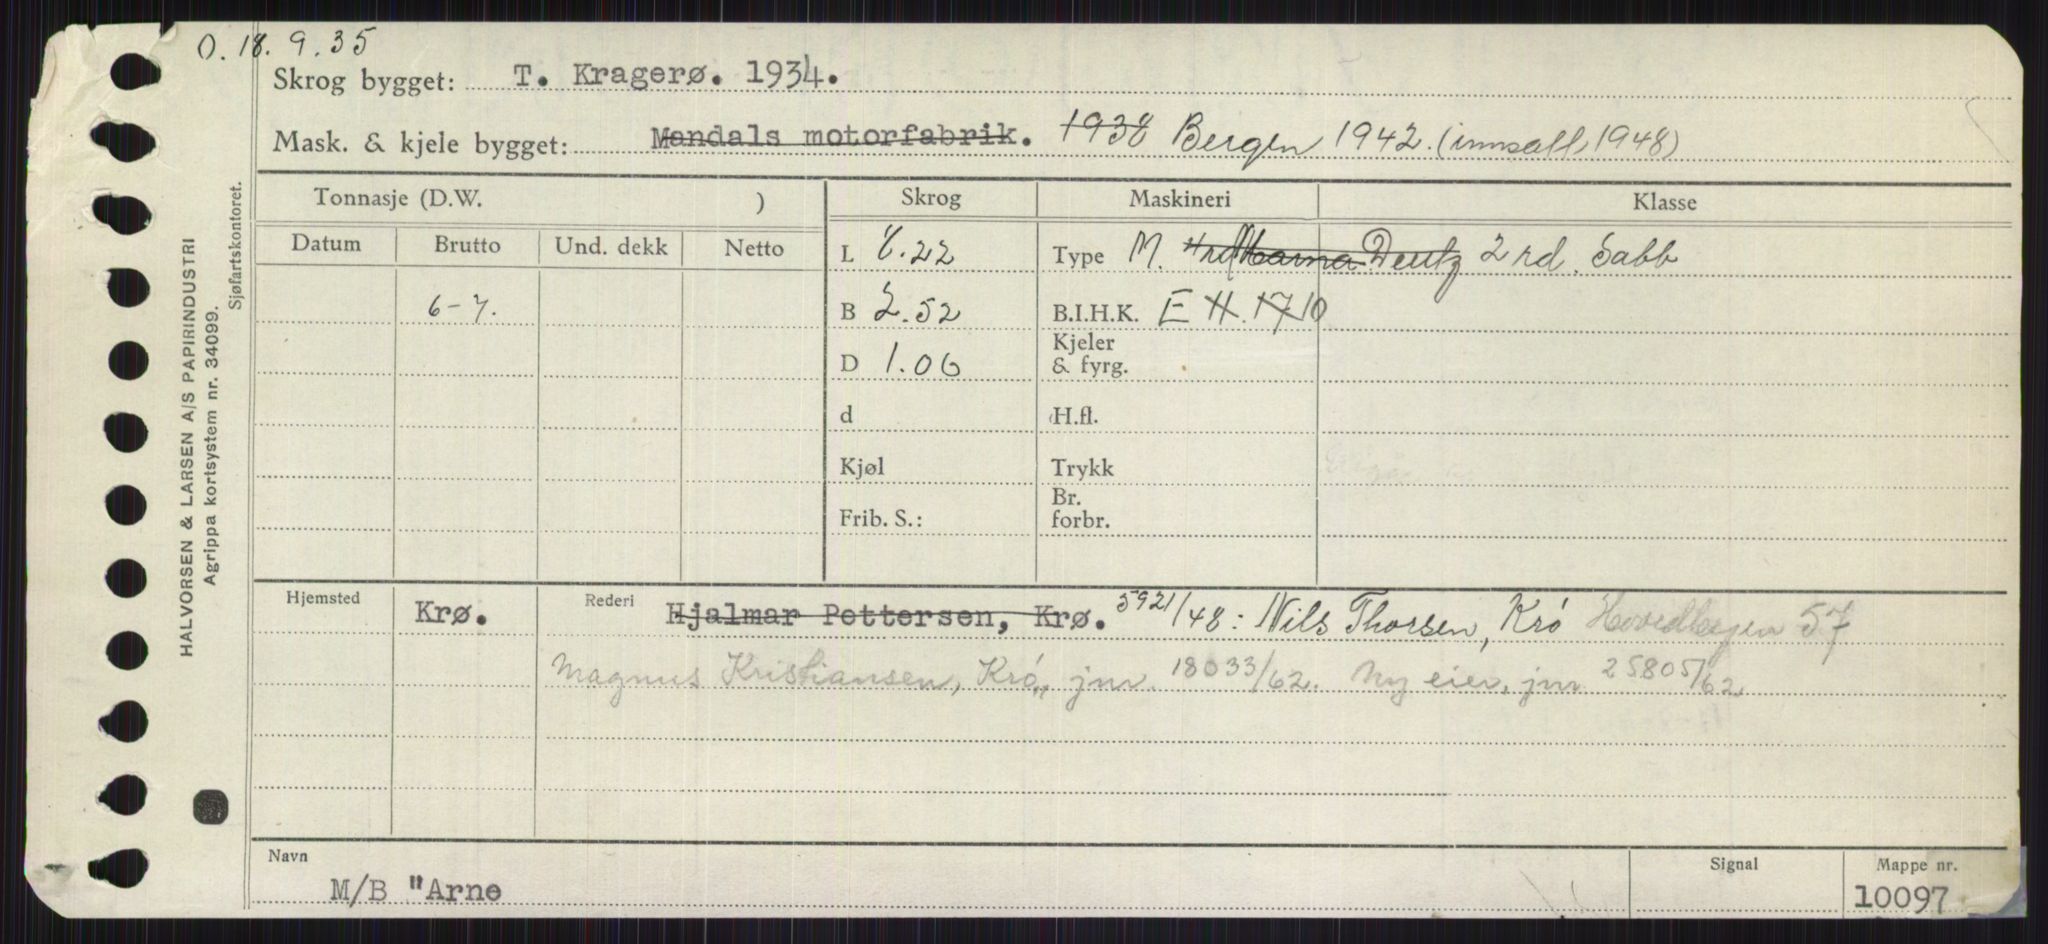 O. 18.9.35
Skrog bygget: T. Kragerø. 1934.
Mask. & kjele bygget: Mandals motorfabrik. 1938 Bergen 1942. (innsatt 1948)
Tonnasje (D.W. ) Skrog Maskineri Klasse
Datum Brutto Und. dekk Netto
L 8.22 Type M. Deutz 2 rd. Sabb
6-7. B 2.52 B.I.H.K. E H. 17 10
D 1.06 Kjeler & fyrg.
d H.fl.
Kjøl Trykk
Frib. S.: Br. forbr.
Hjemsted Krø. Rederi Hjalmar Pettersen, Krø. 5921/48: Nils Thorsen, Krø 57
Magnus Kristiansen, Krø, jnr. 18033/62. Ny eier, jnr. 25805/62
Navn Signal Mappe nr.
M/B "Arne 10097
HALVORSEN & LARSEN A/S PAPIRINDUSTRI
Agrippa kortsystem nr. 34099.
Sjøfartskontoret.